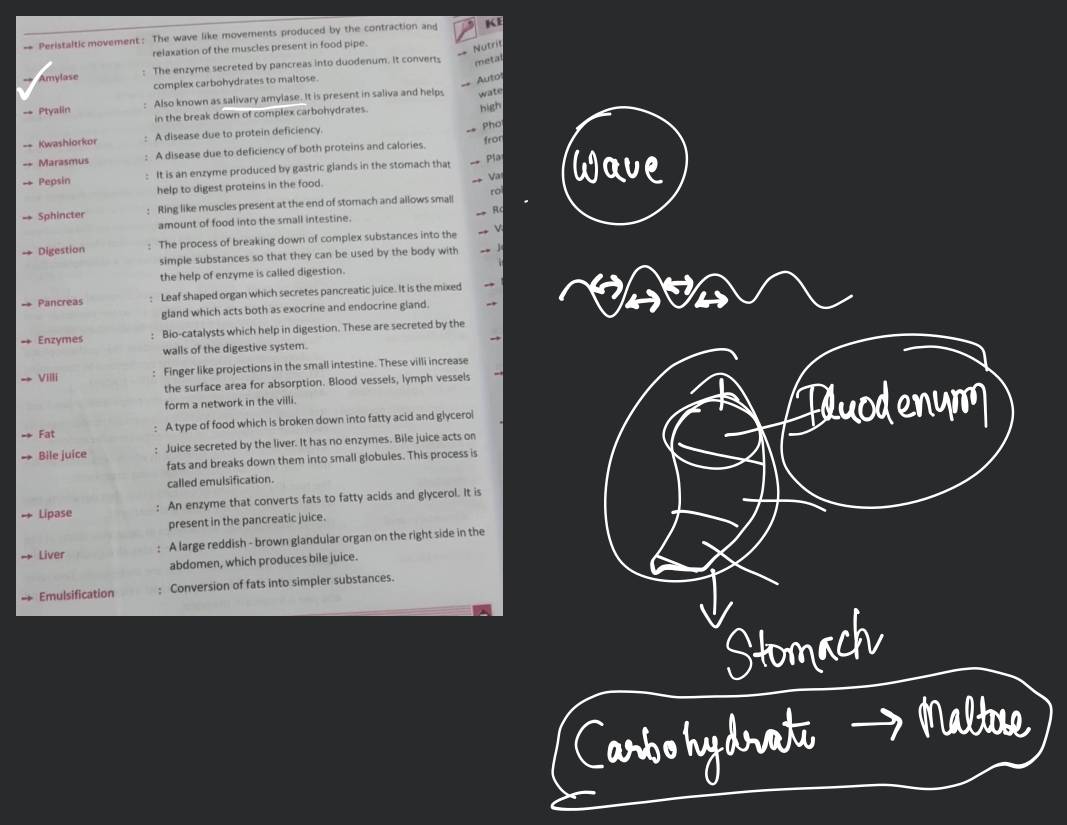 → Peristaltic movement : The wave like movements produced by the contraction and
relaxation of the muscles present in food pipe.
→ Amylase : The enzyme secreted by pancreas into duodenum. It converts
complex carbohydrates to maltose.
→ Ptyalin : Also known as salivary amylase. It is present in saliva and helps
in the break down of complex carbohydrates.
→ Kwashiorkor : A disease due to protein deficiency.
→ Marasmus : A disease due to deficiency of both proteins and calories.
→ Pepsin : It is an enzyme produced by gastric glands in the stomach that
help to digest proteins in the food.
→ Sphincter : Ring like muscles present at the end of stomach and allows small
amount of food into the small intestine.
→ Digestion : The process of breaking down of complex substances into the
simple substances so that they can be used by the body with
the help of enzyme is called digestion.
→ Pancreas : Leaf shaped organ which secretes pancreatic juice. It is the mixed
gland which acts both as exocrine and endocrine gland.
→ Enzymes : Bio-catalysts which help in digestion. These are secreted by the
walls of the digestive system.
→ Villi : Finger like projections in the small intestine. These villi increase
the surface area for absorption. Blood vessels, lymph vessels
form a network in the villi.
→ Fat : A type of food which is broken down into fatty acid and glycerol
→ Bile juice : Juice secreted by the liver. It has no enzymes. Bile juice acts on
fats and breaks down them into small globules. This process is
called emulsification.
→ Lipase : An enzyme that converts fats to fatty acids and glycerol. It is
present in the pancreatic juice.
→ Liver : A large reddish - brown glandular organ on the right side in the
abdomen, which produces bile juice.
→ Emulsification : Conversion of fats into simpler substances.
KE
→ Nutrit
metal
→ Autot
wate
high
→ Phot
from
→ Plan
→ Var
→ Ro
Wave
Duodenum
Stomach
Carbohydrate → Maltose